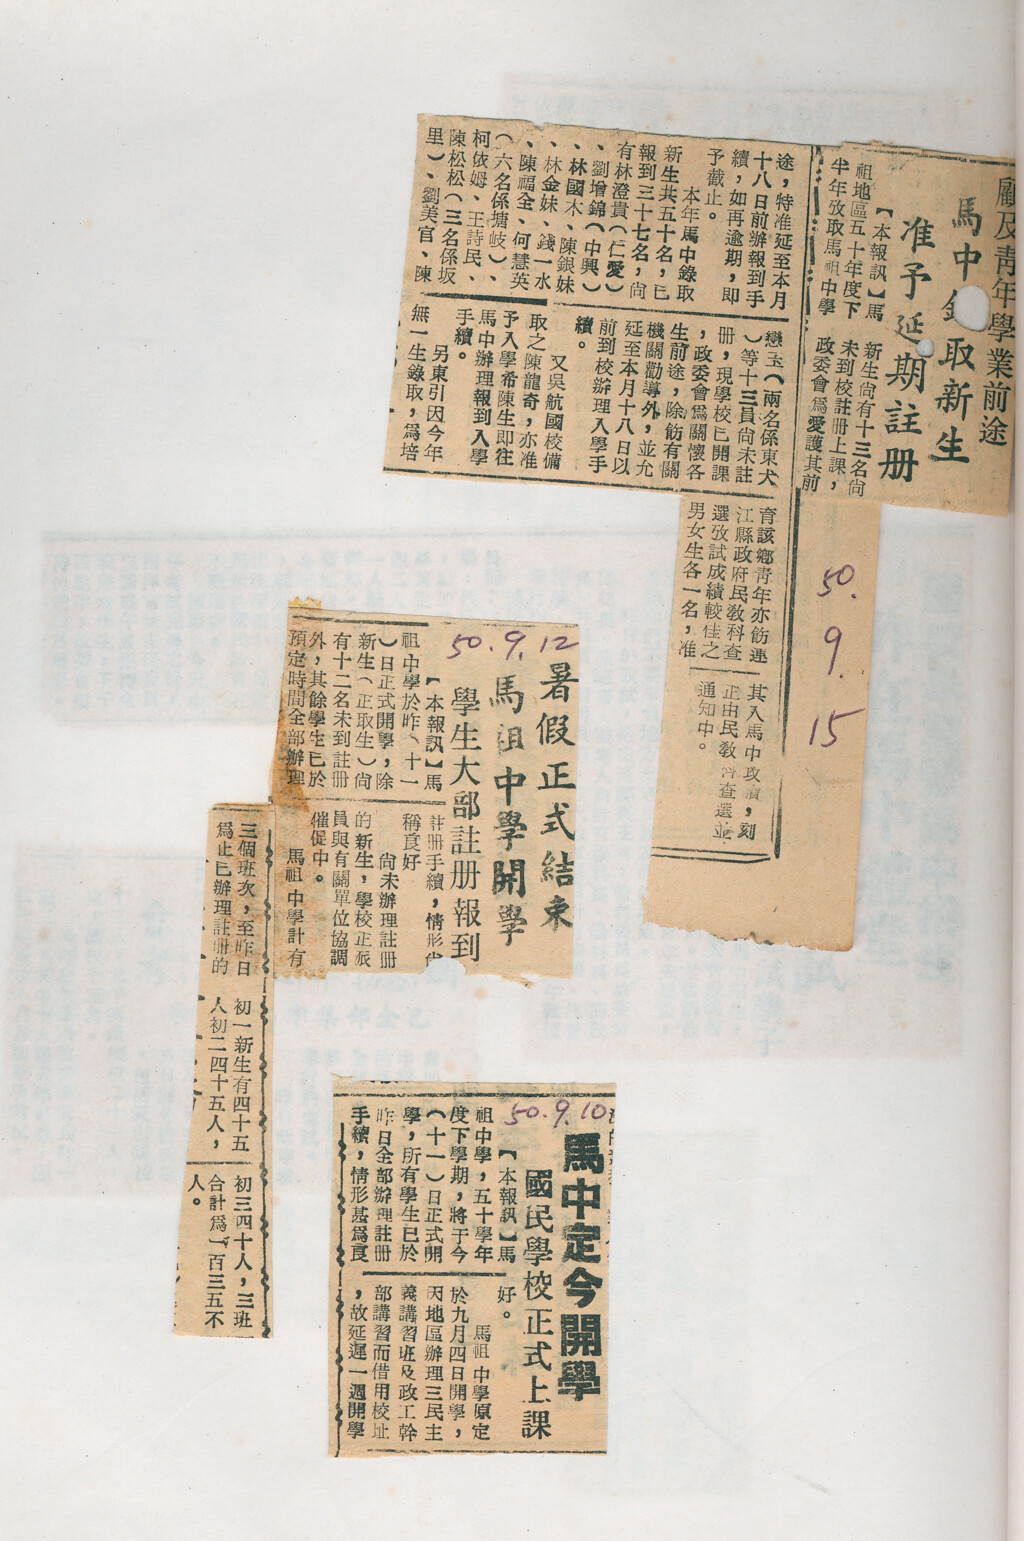 顧及青年學業前途
馬中錄取新生
准予延期註册
【本報訊】馬
祖地區五十年度下
半年攷取馬祖中學
新生尚有十三名尚
未到校註册上課，
政委會爲愛護其前
途，特准延至本月
十八日前辦報到手
續，如再逾期，即
予截止。
本年馬中錄取
新生共五十名，已
報到三十七名，尚
有林澄貴（仁愛）
、劉增錦（中興）
、林國木、陳銀妹
、林金妹、錢一水
、陳福全、何慧英
（六名係塘岐）、
柯依姆、王詩民、
陳松松（三名係坂
里）、劉美官、陳
戀玉（兩名係東犬
）等十三員尚未註
册，現學校已開課
，政委會爲關懷各
生前途，除飭有關
機關勸導外，並允
延至本月十八日以
前到校辦理入學手
續。
又吳航國校備
取之陳龍奇，亦准
予入學希陳生即往
馬中辦理報到入學
手續。
另東引因今年
無一生錄取，爲培
育該鄉青年亦飭連
江縣政府民教科查
選攷試成績較佳之
男女生各一名，准
其入馬中攻讀，刻
正由民教科查選並
通知中。
50.
9.
15
50.9.12
暑假正式結束
馬祖中學開學
學生大部註册報到
【本報訊】馬
祖中學於昨（十一
）日正式開學，除
新生（正取生）尚
有十二名未到註册
外，其餘學生已於
預定時間全部辦理
註册手續，情形尚
稱良好
尚未辦理註册
的新生，學校正派
員與有關單位協調
催促中。
馬祖中學計有
三個班次，至昨日
爲止已辦理註册的
初一新生有四十五
人初二四十五人，
初三四十人，三班
合計爲一百三五不
人。
50.9.10
馬中定今開學
國民學校正式上課
【本報訊】馬
祖中學，五十學年
度下學期，將于今
（十一）日正式開
學，所有學生已於
昨日全部辦理註册
手續，情形甚爲良
好。
馬祖中學原定
於九月四日開學，
天地區辦理三民主
義講習班及政工幹
部講習而借用校址
，故延遲一週開學